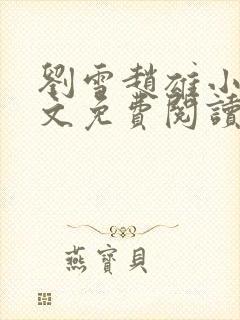 劉雪趙雄小
文免費閱讀
燕寶貝